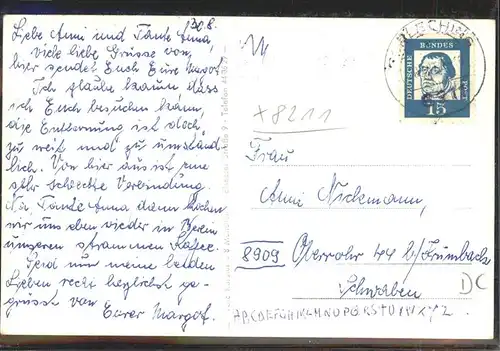 30.8.
Liebe Anni und Tante Anna,
viele liebe Grüsse von
hier sendet Euch Eure Margot.
Ich glaube kaum, dass
ich Euch besuchen kann,
die Entfernung ist doch
zu weit und zu umständ
lich. Von hier aus ist eine
sehr schlechte Verbindung.
Na, Tante Anna dann kochen
wir uns eben wieder in
unseren strammen Kaffee.
Seid nun meine beiden
Lieben recht herzlichst ge-
grüsst von
Eurer Margot.
DEUTSCHE BUNDES
15
x 8211
Frau
Anni Nickmann,
8909 Oberrohr 44 b/Krumbach
Schwaben
DC
ABCDEFGHIKLMNOPQRSTUVWXYZ